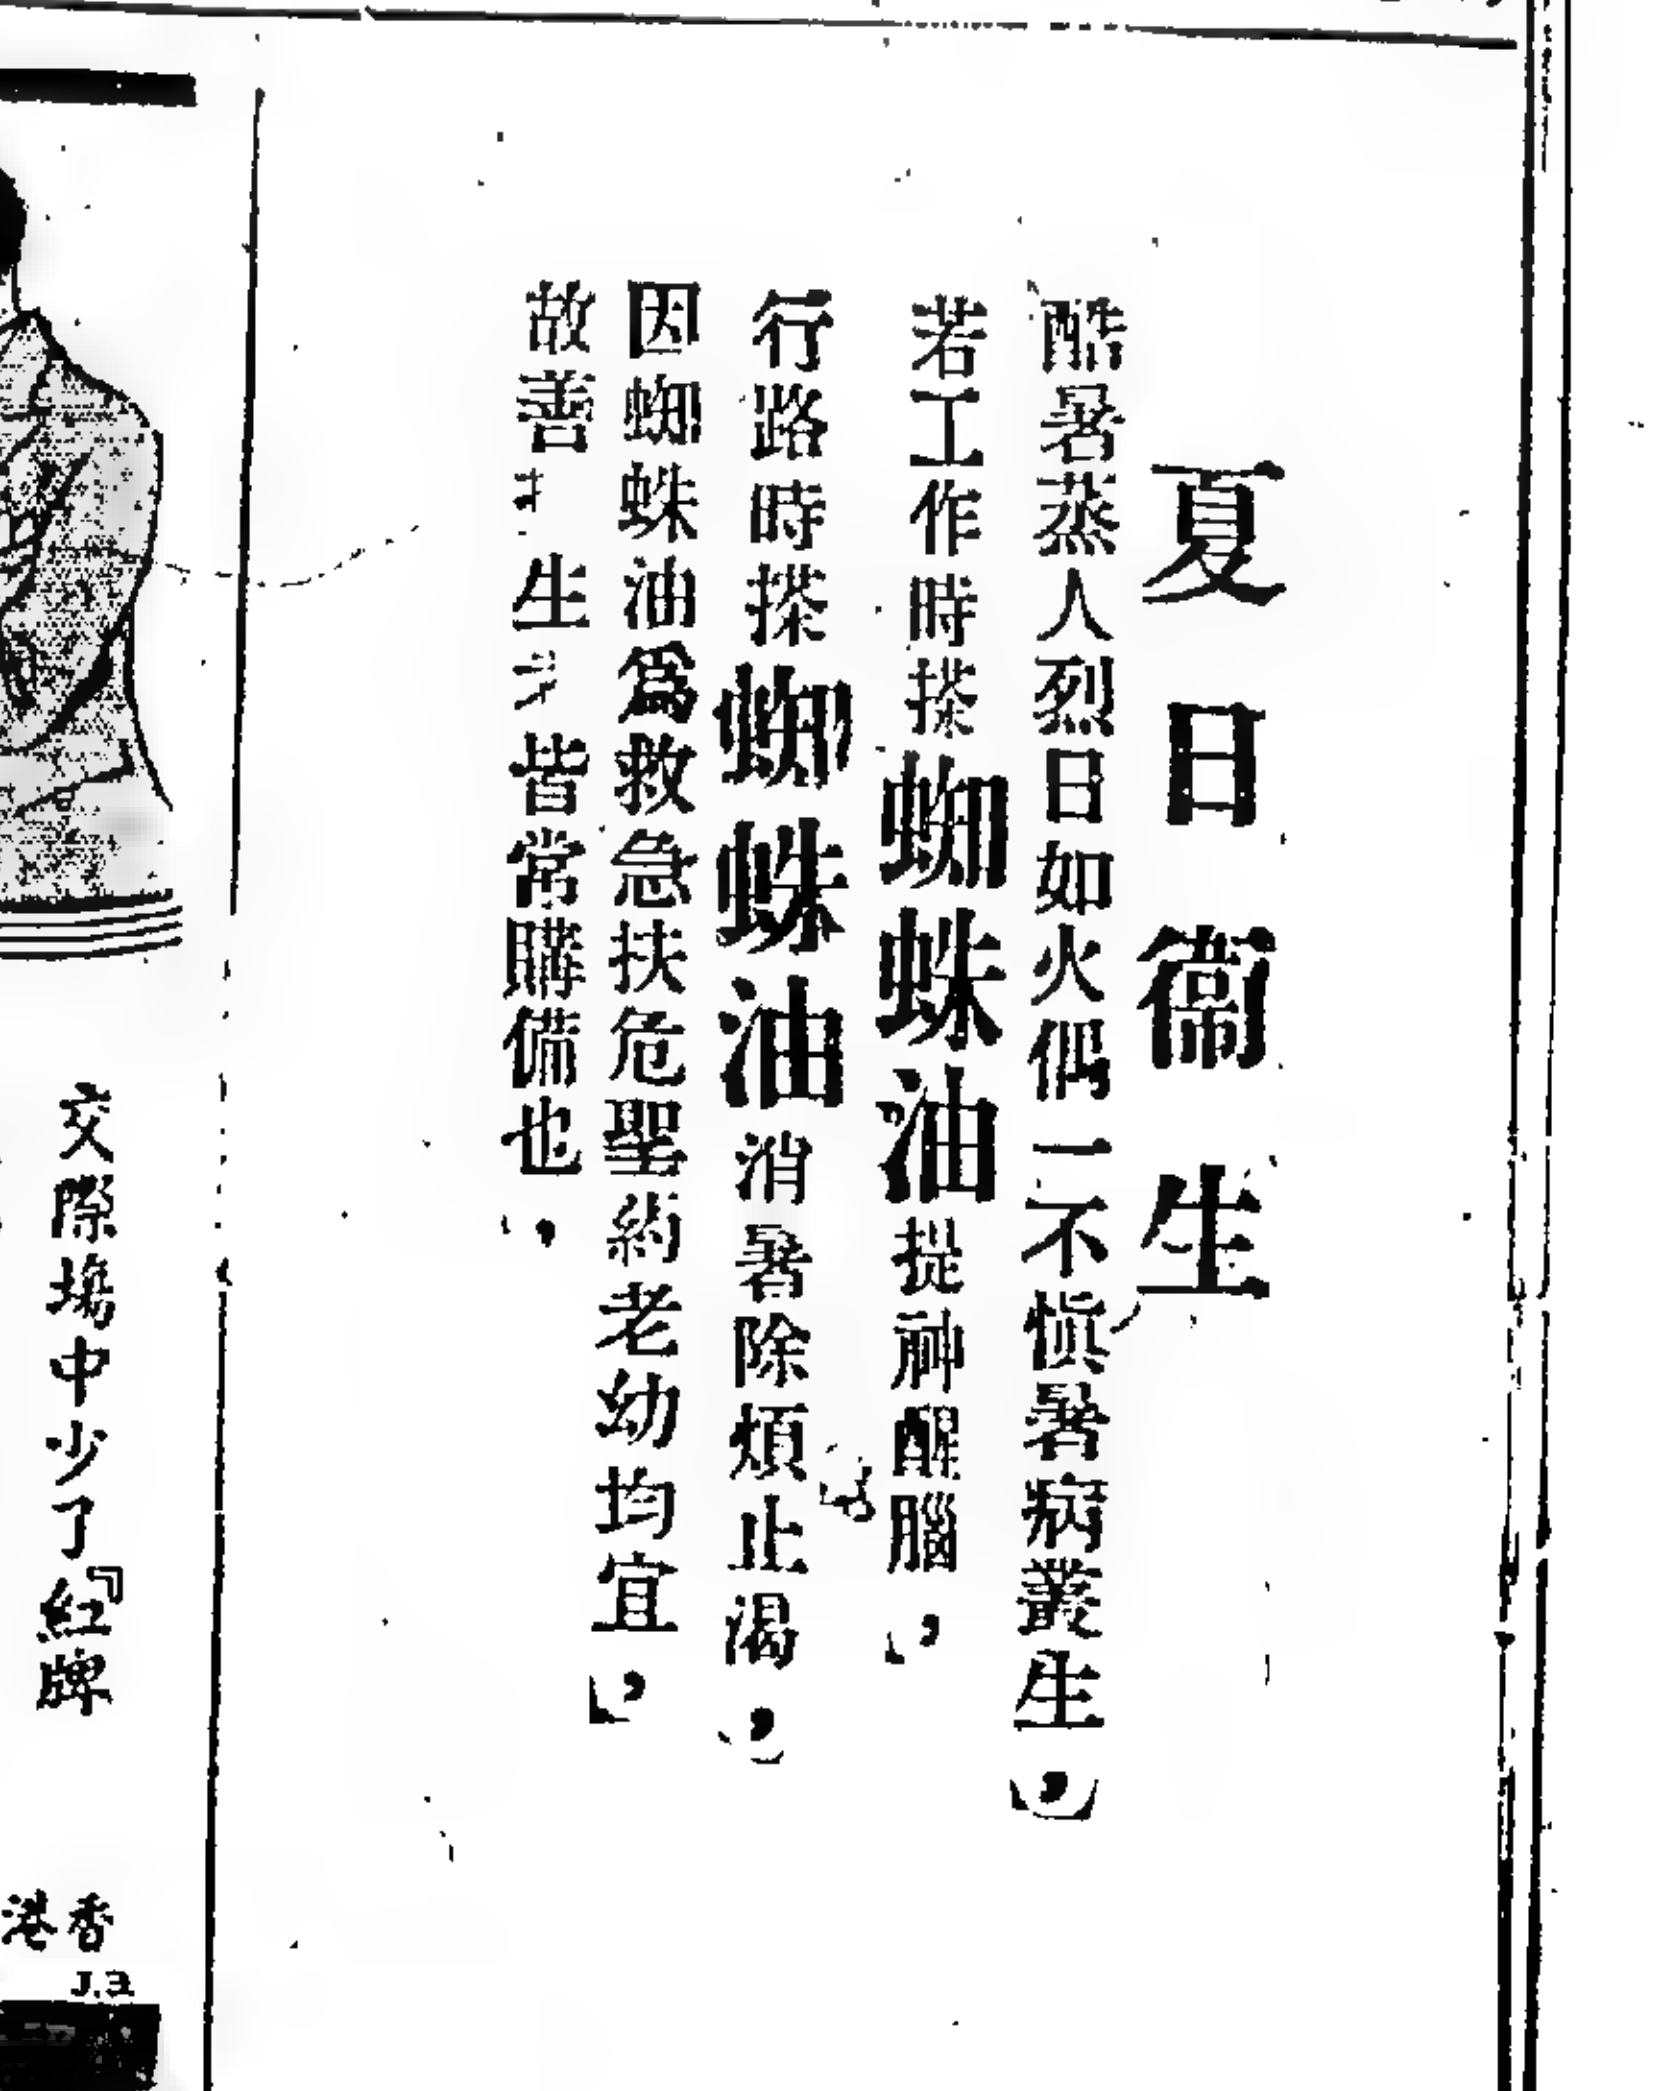 夏日衞生
酷暑蒸人烈日如火偶一不慎暑病叢生，
若工作時搽蜘蛛油提神醒腦，
行路時搽蜘蛛油消暑除煩止渴，
因蜘蛛油爲救急扶危聖药老幼均宜，
故善生皆常購備也，
交際塲中少了『紅牌
香港